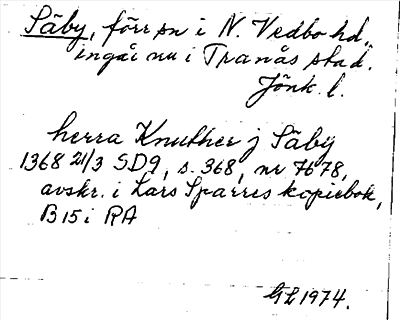 Säby, förr sn i N. Vedbo hd,
ingår nu i Tranås stad.
Jönk. l.
herra Knuther j Säby
1368 21/3 SD9, s. 368, nr 7678,
avskr. i Lars Sparres kopiebok,
B 15 i RA
GL 1974.